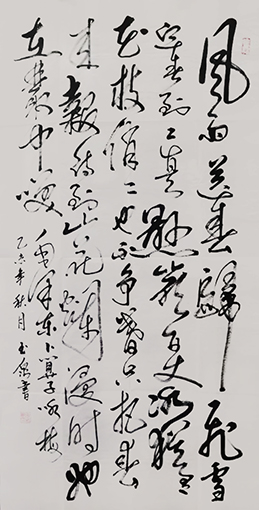 风雨送春归飞雪
迎春到已是悬崖百丈冰犹有
花枝俏俏也不争春只把春
来报待到山花烂漫时她
在丛中笑毛泽东卜算子咏梅
乙未年秋月